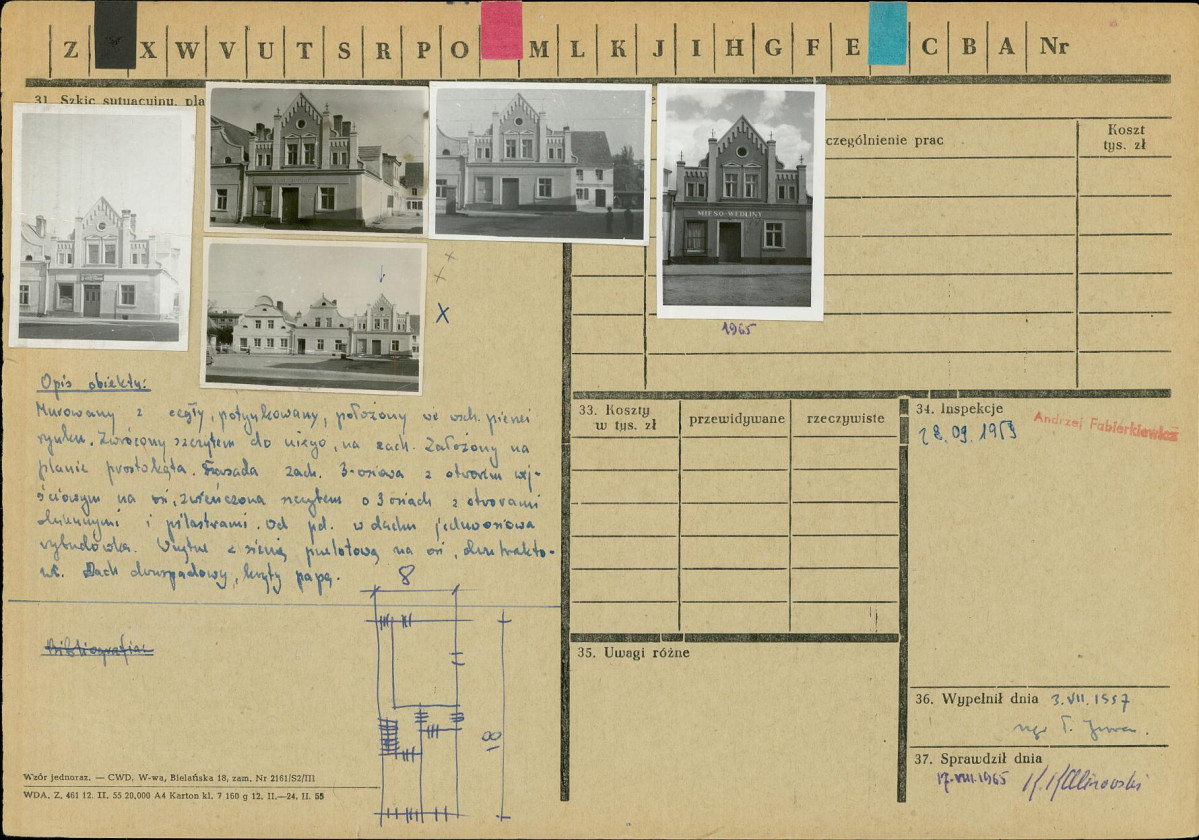 Z X W V U T S R P O M L K J I H G F E C B A Nr
31. Szkic sytuacyjny, pla
czególnienie prac
Koszt
tys. zł
MIĘSO-WĘDLINY
1965
X
Opis obiektu:
Murowany z cegły, potynkowany, położony we wsch. pierzei
rynku. Zwrócony szczytem do niego, na zach. Założony na
planie prostokąta. Fasada zach. 3-osiowa z otworem wej-
ściowym na osi, zwieńczona szczytem o 3 osiach z otworami
okiennymi i pilastrami. Od pd. w dachu jednoosiowa
wybudówka. Wnętrze z sienią przelotową na osi, dwutrakto-
we. Dach dwuspadowy, kryty papą.
8
18
Bibliografia:
33. Koszty
w tys. zł
przewidywane
rzeczywiste
34. Inspekcje
28.09.1959
Andrzej Fabierkiewicz
35. Uwagi różne
36. Wypełnił dnia 3.VII.1957
mgr T.
37. Sprawdził dnia
17.VIII.1965
Wzór jednoraz. — CWD, W-wa, Bielańska 18, zam. Nr 2161/S2/III
WDA. Z. 461 12. II. 55 20,000 A4 Karton kl. 7 160 g 12. II.—24. II. 55